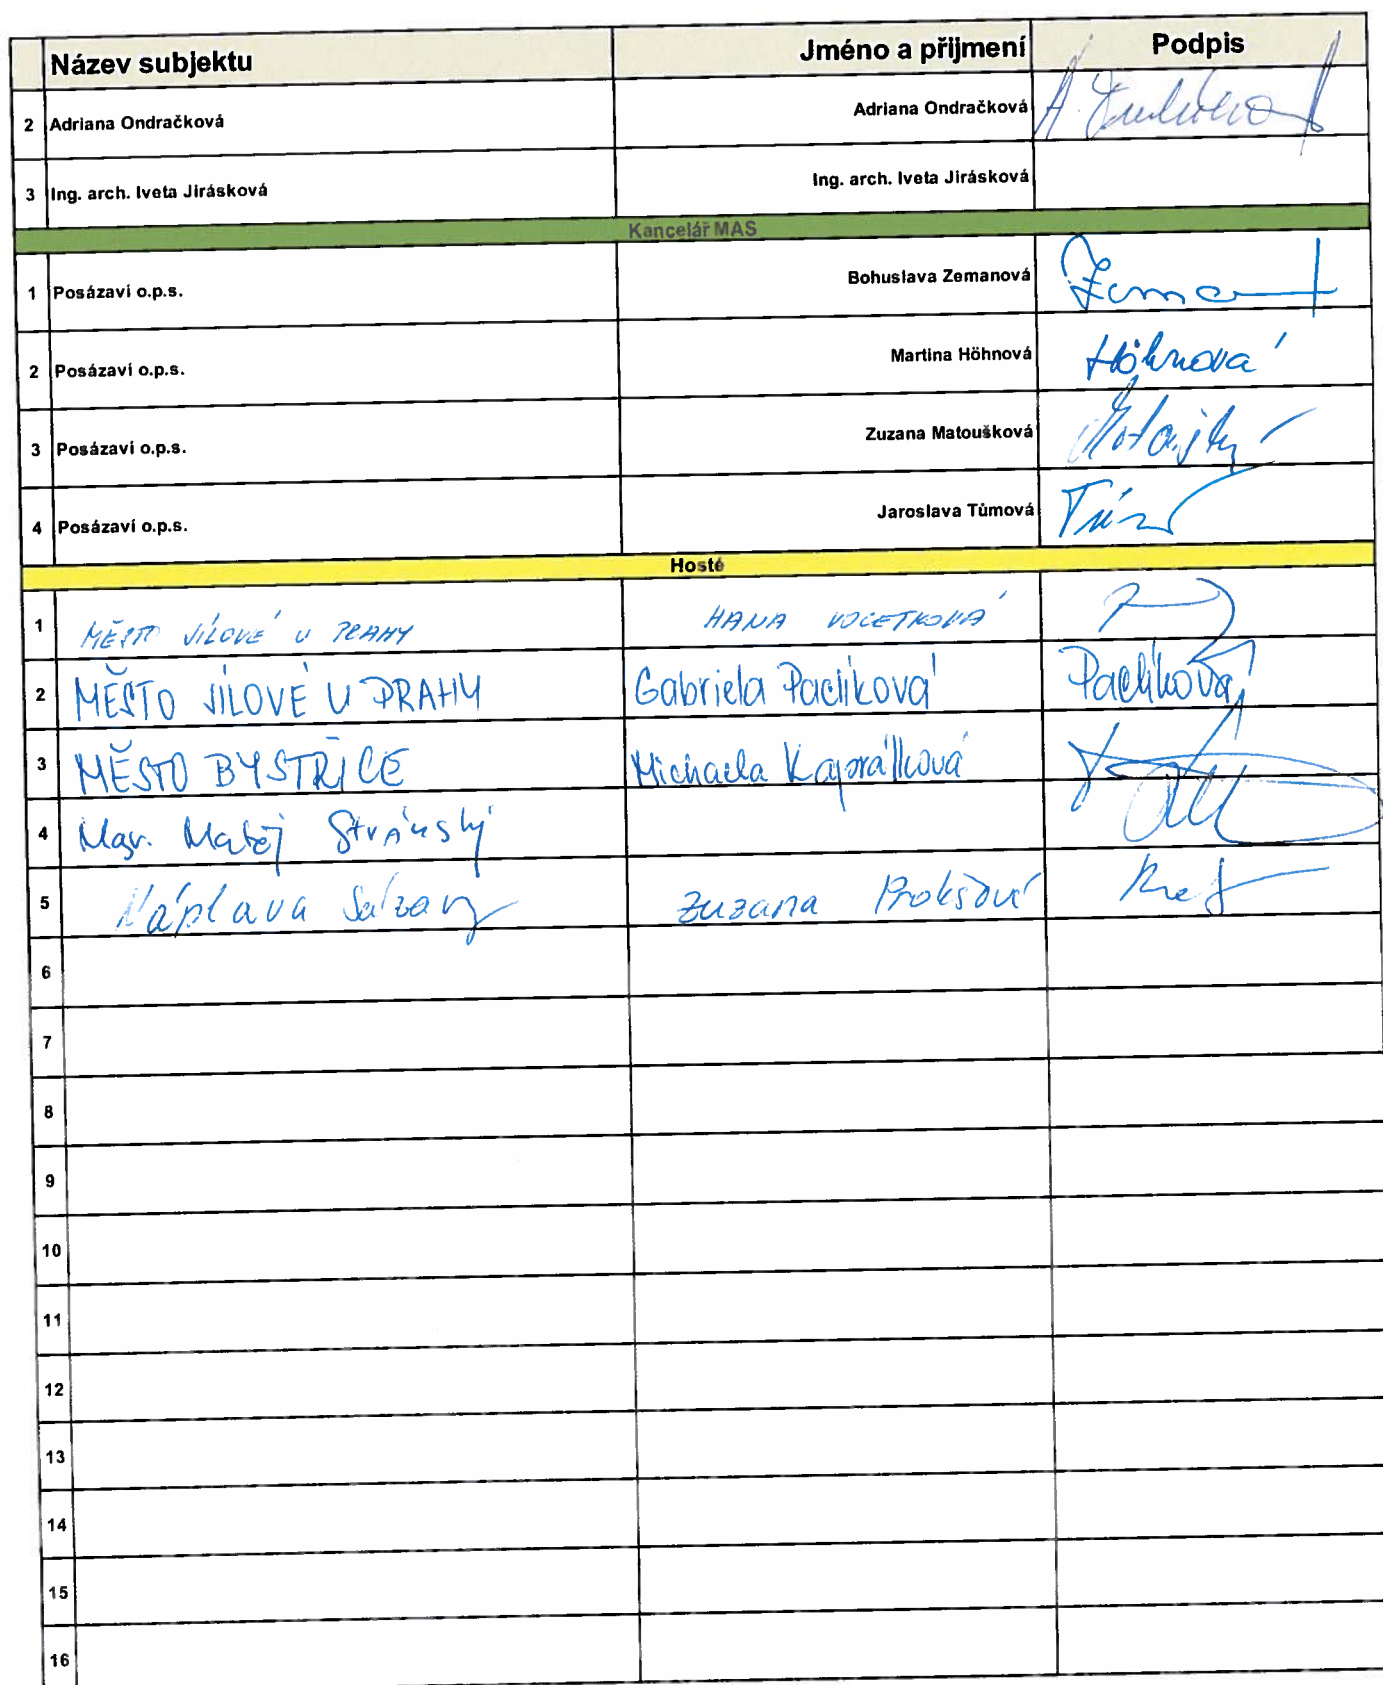 Název subjektu Jméno a přijmení Podpis
2 Adriana Ondračková Adriana Ondračková
3 Ing. arch. Iveta Jirásková Ing. arch. Iveta Jirásková
Kancelář MAS
1 Posázaví o.p.s. Bohuslava Zemanová
2 Posázaví o.p.s. Martina Höhnová Höhnová
3 Posázaví o.p.s. Zuzana Matoušková
4 Posázaví o.p.s. Jaroslava Tůmová
Hosté
1 MĚSTO JÍLOVÉ U PRAHY HANA
2 MĚSTO JÍLOVÉ U PRAHY Gabriela Paclíková Paclíková
3 MĚSTO BYSTŘICE Michaela Kaprálková
4 Mgr. Matěj Stránský
5 Náplava Sázavy Zuzana Prokšová
6
7
8
9
10
11
12
13
14
15
16